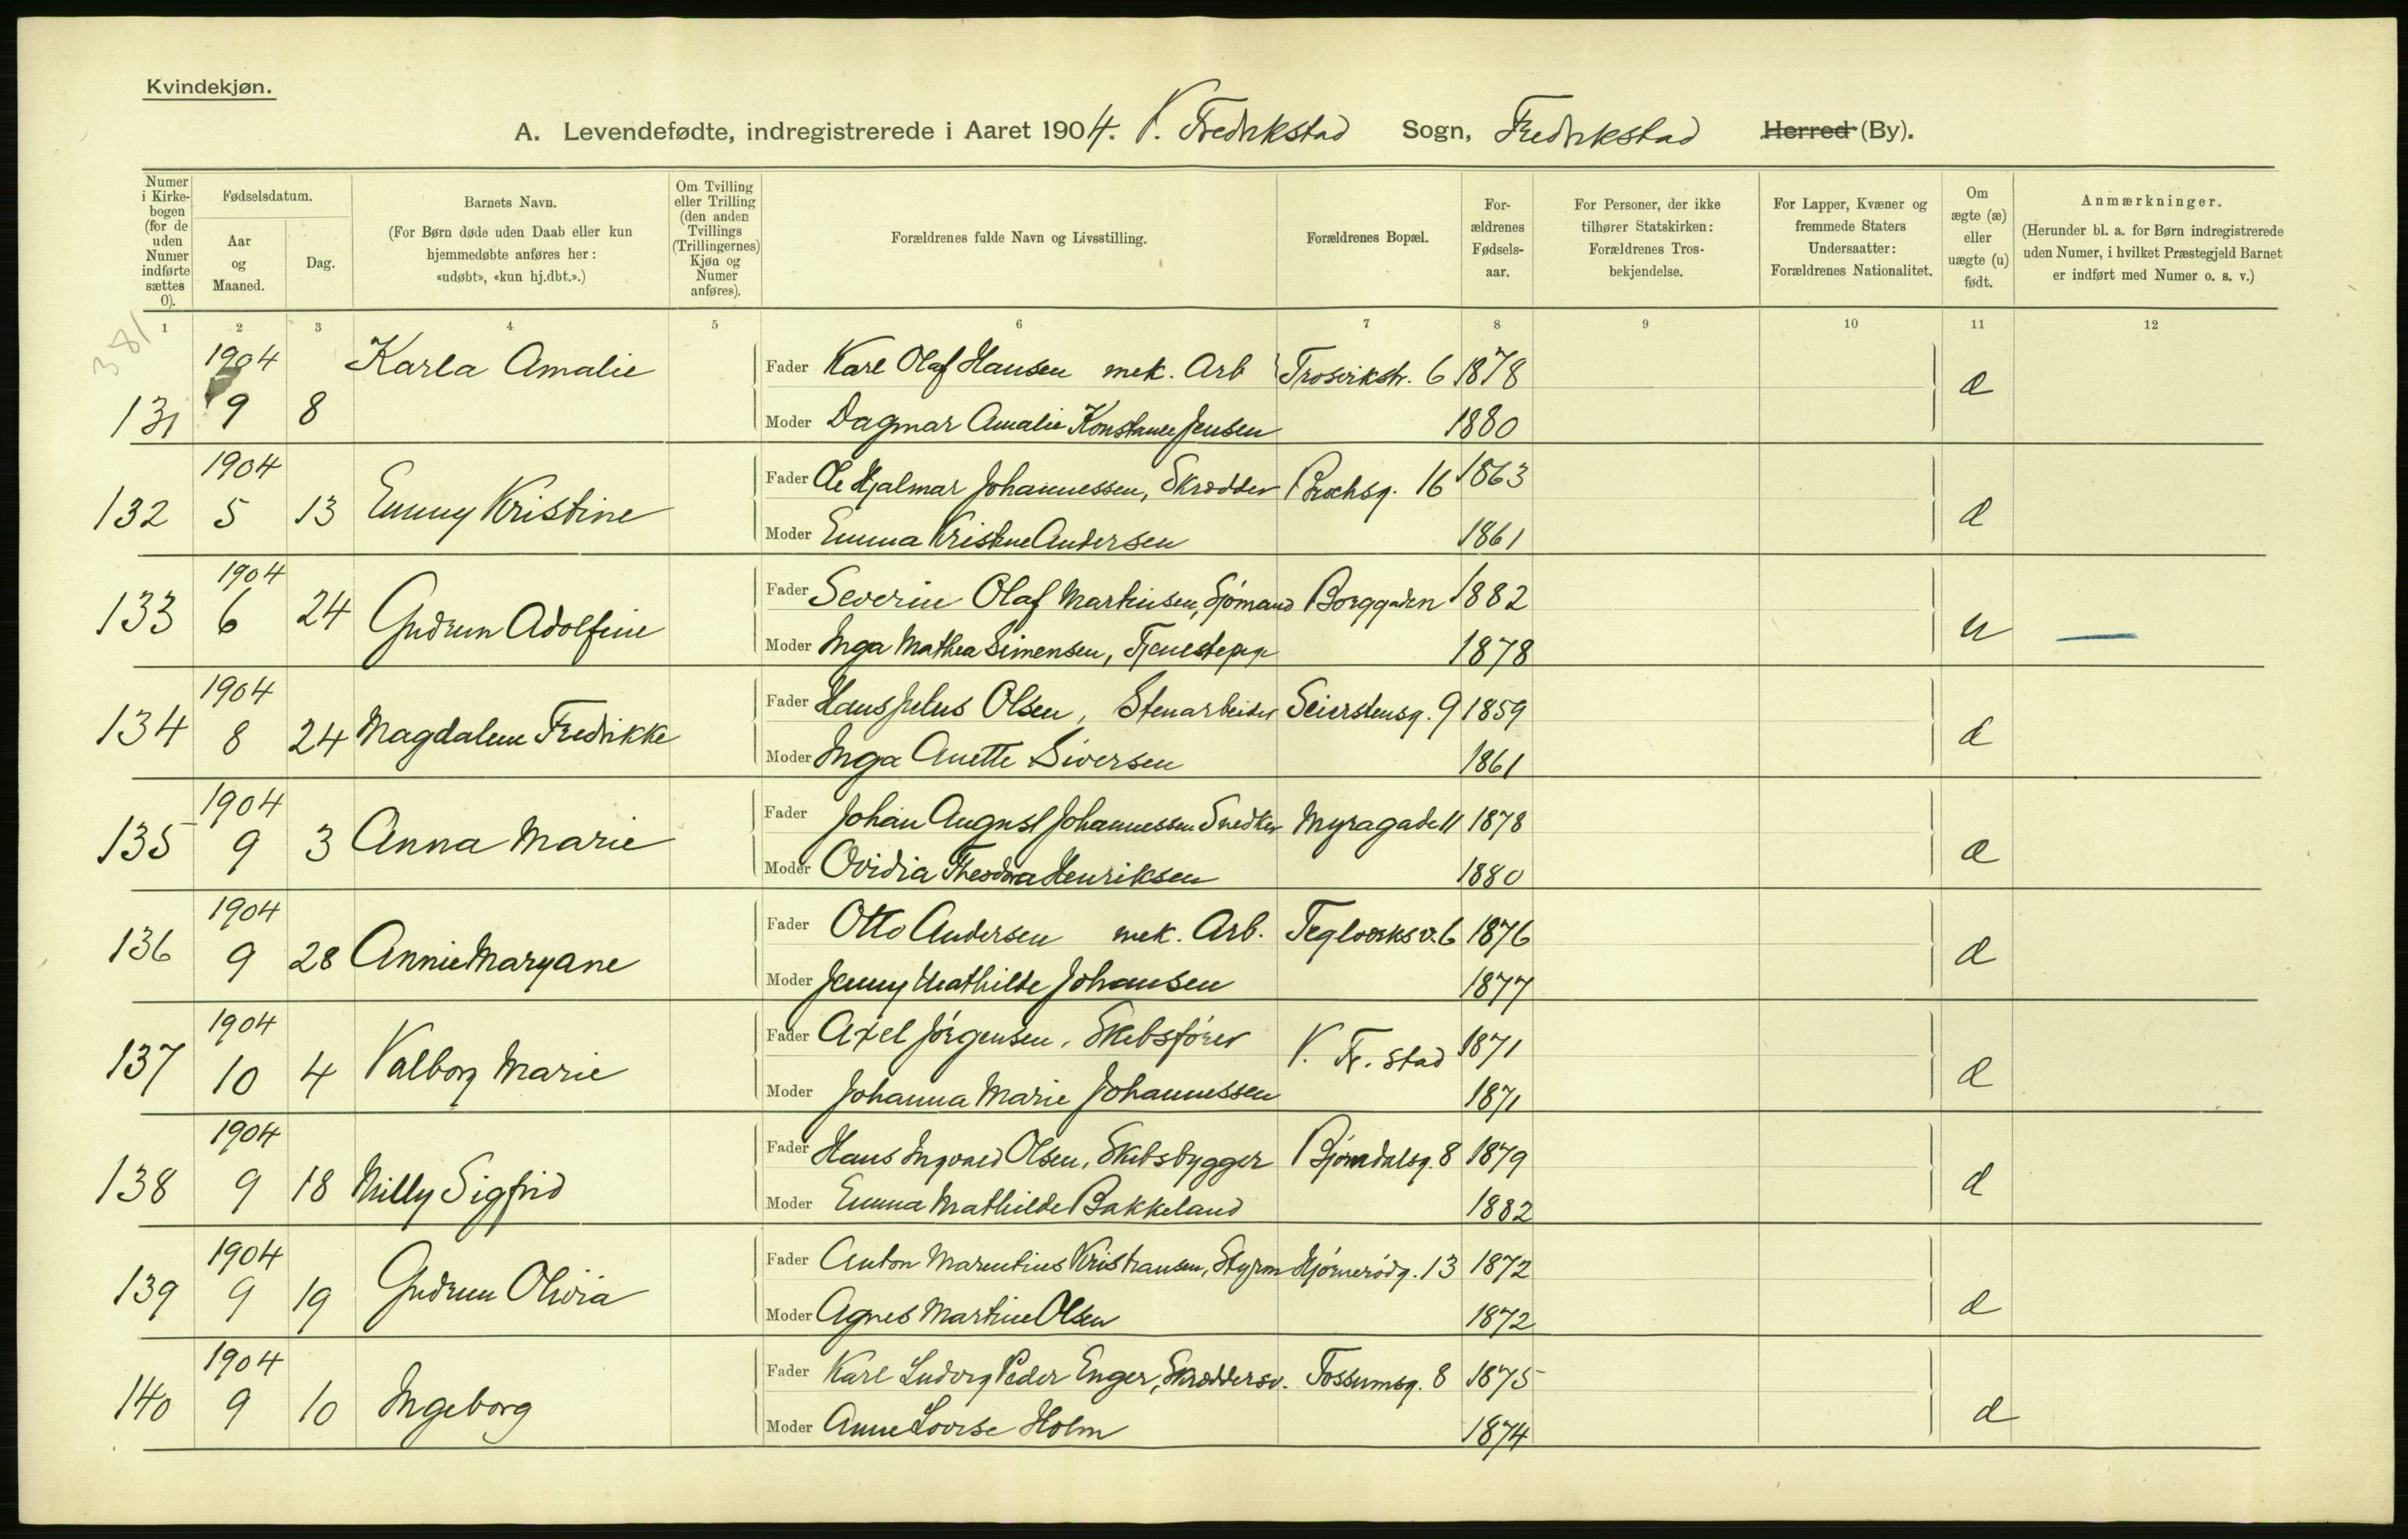 Kvindekjøn.
A. Levendefødte, indregistrerede i Aaret 1904. V. Fredrikstad Sogn, Fredrikstad Herred (By).
Numer i Kirkebogen (for de uden Numer indførte sættes 0).
Fødselsdatum.
Aar og Maaned.
Dag.
Barnets Navn.
(For Børn døde uden Daab eller kun hjemmedøbte anføres her: «udøbt», «kun hj.dbt.».)
Om Tvilling eller Trilling (den anden Tvillings (Trillingernes) Kjøn og Numer anføres).
Forældrenes fulde Navn og Livsstilling.
Forældrenes Bopæl.
Forældrenes Fødselsaar.
For Personer, der ikke tilhører Statskirken: Forældrenes Trosbekjendelse.
For Lapper, Kvæner og fremmede Staters Undersaatter: Forældrenes Nationalitet.
Om ægte (æ) eller uægte (u) født.
Anmærkninger.
(Herunder bl. a. for Børn indregistrerede uden Numer, i hvilket Præstegjeld Barnet er indført med Numer o. s. v.)
1 2 3 4 5 6 7 8 9 10 11 12
381
1904 Karla Amalie Fader Karl Olaf Hansen mek. Arb Trosvikstr. 6 1878 æ
131 9 8 Moder Dagmar Amalie Konstance Jensen 1880
1904 Fader Ole Hjalmar Johannessen, Skrædder Brochsg. 16 1863
132 5 13 Emmy Kristine Moder Emma Kristine Andersen 1861 æ
1904 Fader Severin Olaf Martinsen, Sjømand Borggaden 1882
133 6 24 Gudrun Adolfine Moder Inga Mathea Simensen, Tjenestepige 1878 u
1904 Fader Hans Julius Olsen, Stenarbeider Seierstensg. 9 1859
134 8 24 Magdalene Fredrikke Moder Inga Anette Siversen 1861 æ
1904 Fader Johan August Johannessen Snedker Myragade 11 1878
135 9 3 Anna Marie Moder Ovidia Theodora Henriksen 1880 æ
1904 Fader Otto Andersen mek. Arb. Teglværksv. 6 1876
136 9 28 Annie Maryane Moder Jenny Mathilde Johansen 1877 æ
1904 Fader Axel Jörgensen, Skibsförer V. Fr. stad 1871
137 10 4 Valborg Marie Moder Johanna Marie Johannessen 1871 æ
1904 Fader Hans Ingvald Olsen, Skibsbygger Bjørndalsg. 8 1879
138 9 18 Milly Sigfrid Moder Emma Mathilde Bakkeland 1882 æ
1904 Fader Anton Marentius Kristiansen, Styrm 13 1872
139 9 19 Gudrun Olivia Moder Agnes Martine Olsen 1872 æ
1904 Fader Karl Ludvig Peder Enger, Skræddersv. Fossumsg. 8 1875
140 9 10 Ingeborg Moder Anne Lovise Holm 1874 æ